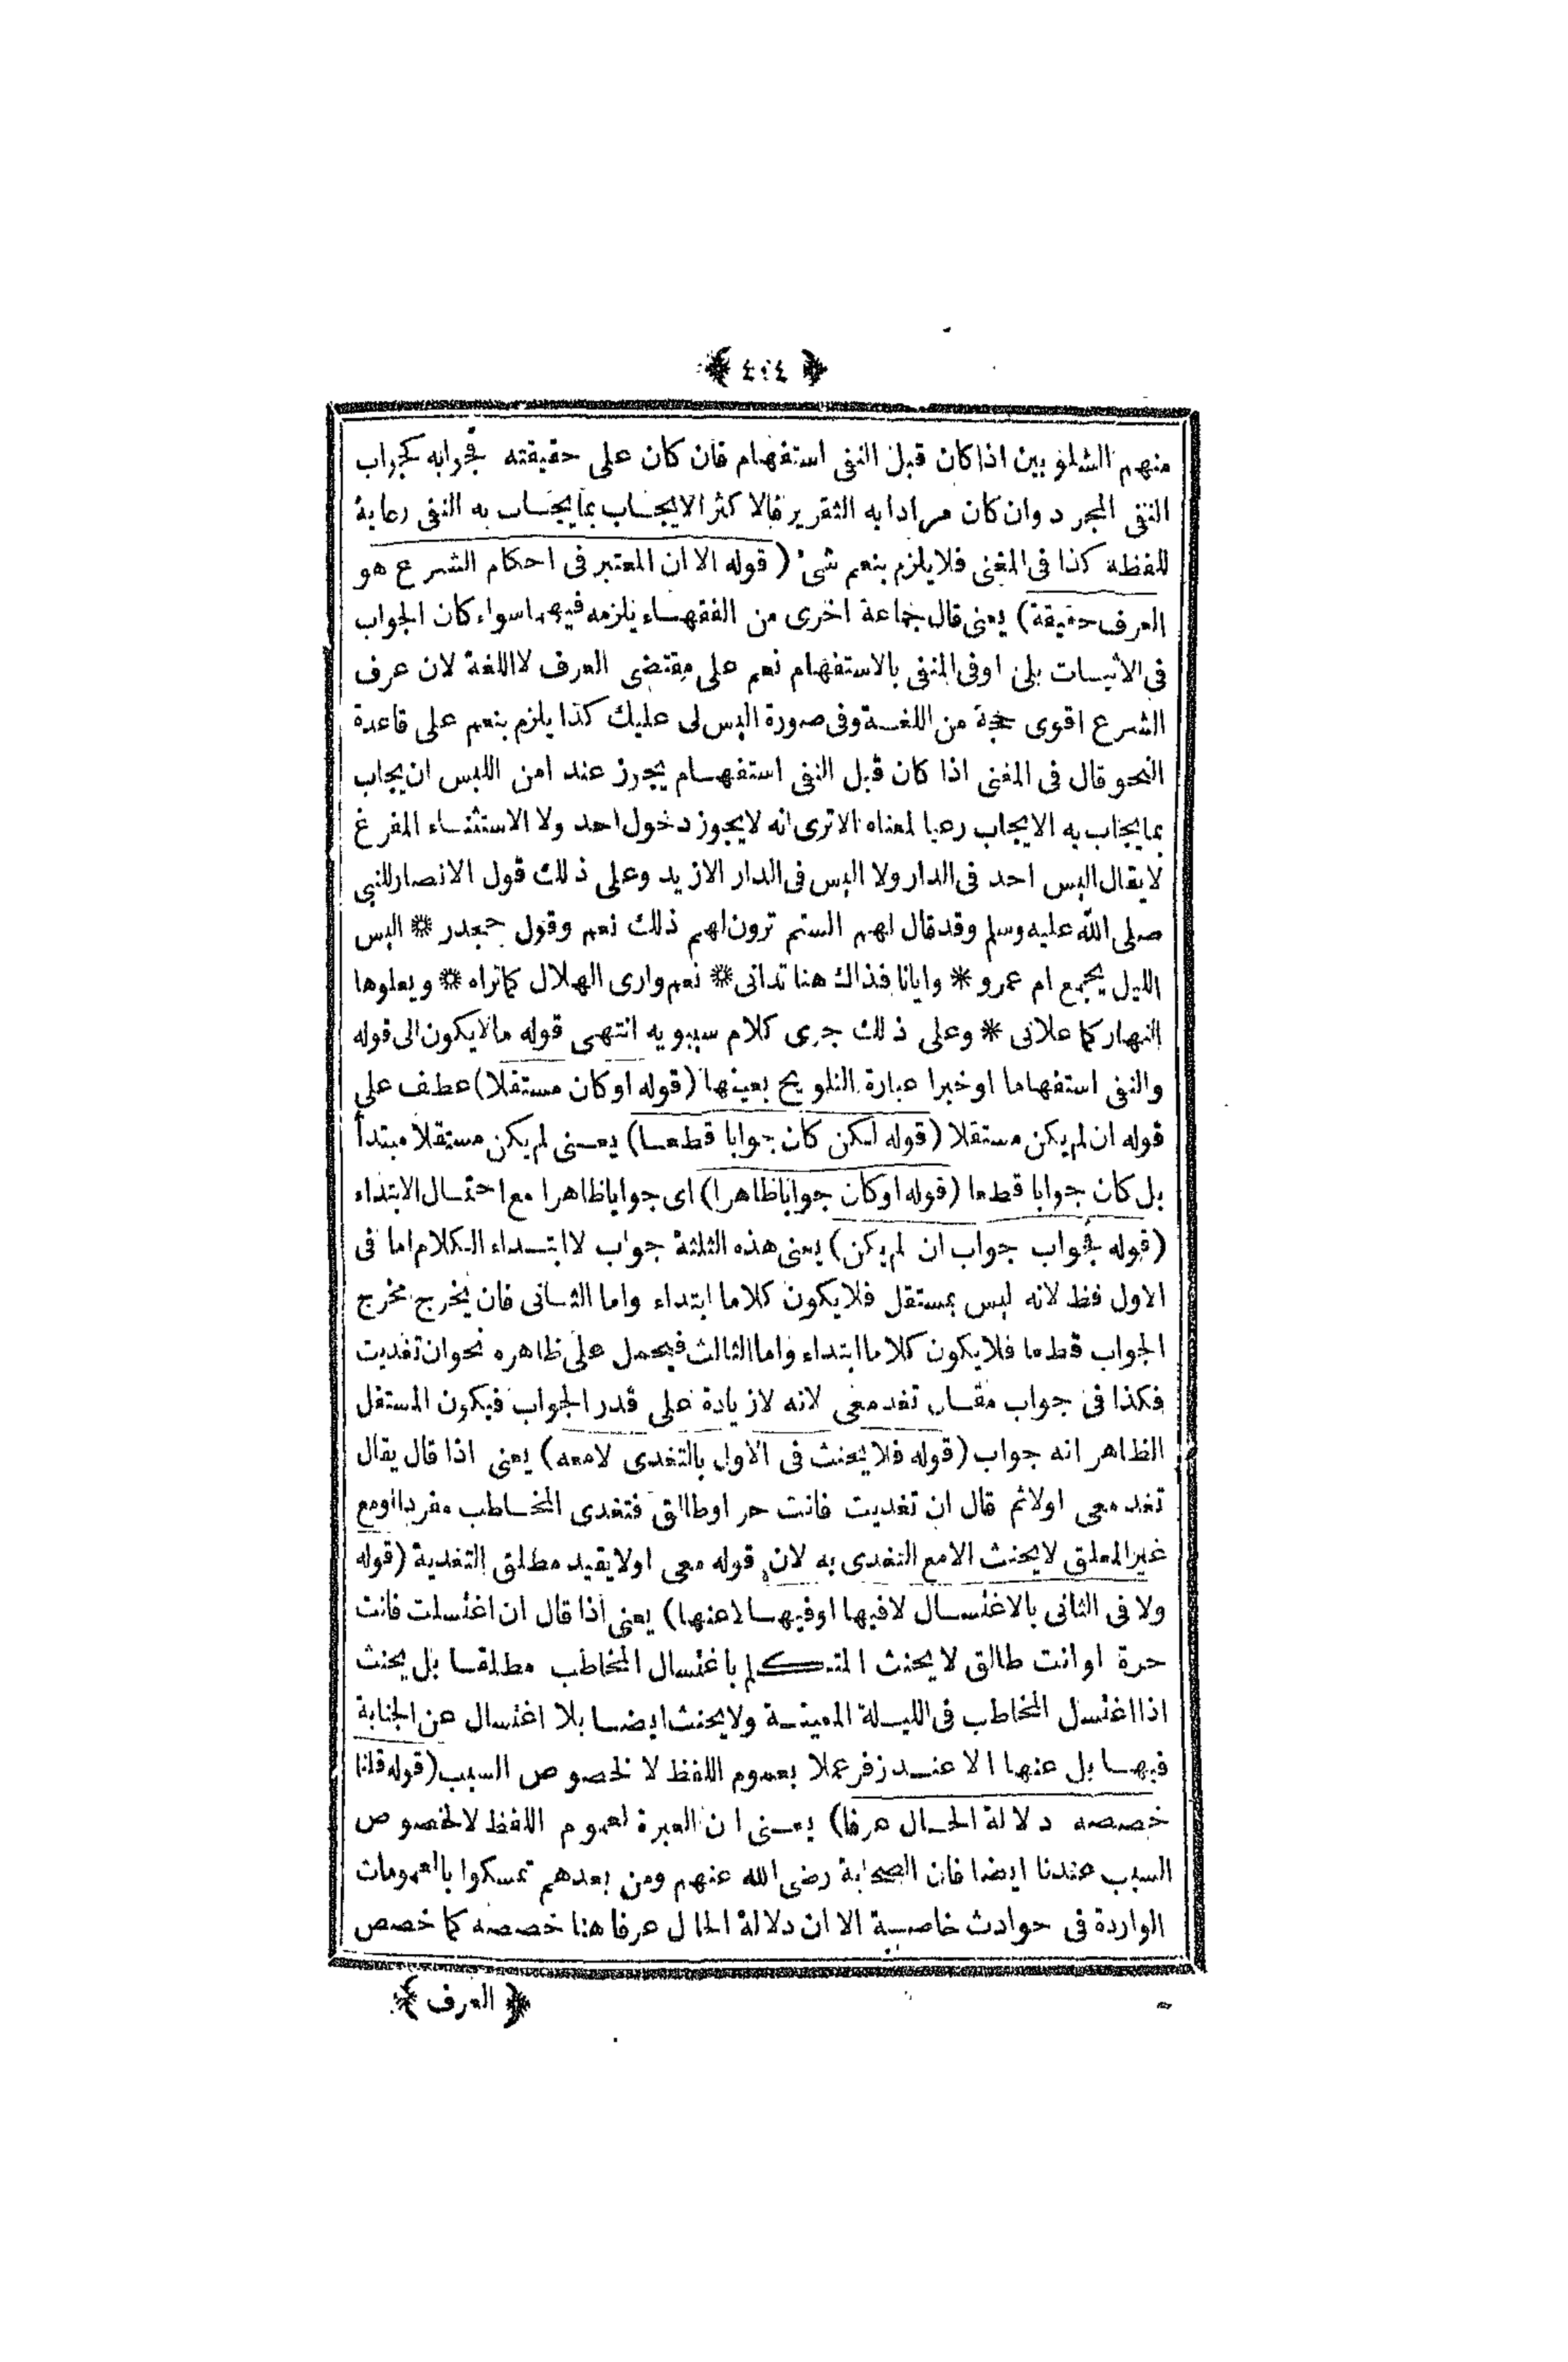 ﴿ ٤٠٤ ﴾
منهم الشلوبين اذا كان قبل النفى استفهام فان كان على حقيقته فجوابه كجواب
النفى المجرد وان كان مرادا به التقرير فالاكثر الايجاب بمايجاب به النفى رعاية
للفظه كذا فى المغنى فلا يلزم بنعم شئ (قوله الا ان المعتبر فى احكام الشرع هو
العرف حقيقة) يعنى قال جماعة اخرى من الفقهاء يلزمه فيهما سواء كان الجواب
فى الاثبات بلى اوفى المنفى بالاستفهام نعم على مقتضى العرف لااللغة لان عرف
الشرع اقوى حجة من اللغة وفى صورة اليس لى عليك كذا يلزم بنعم على قاعدة
النحو قال فى المغنى اذا كان قبل النفى استفهام يجوز عند امن اللبس ان يجاب
بما يجاب به الايجاب رعيا لمعناه الاترى انه لايجوز دخول احد ولا الاستثناء المفرغ
لا يقال اليس احد فى الدار ولا اليس فى الدار الازيد وعلى ذلك قول الانصار للنبى
صلى الله عليه وسلم وقد قال لهم الستم ترون لهم ذلك نعم وقول جحدر * اليس
الليل يجمع ام عمرو * وايانا فذاك هنا تدانى * نعم وارى الهلال كماتراه * ويعلوها
النهار كما علانى * وعلى ذلك جرى كلام سيبويه انتهى قوله مالايكون الى قوله
والنفى استفهاما اوخبرا عبارة التلويح بعينها (قوله اوكان مستقلا) عطف على
قوله ان لم يكن مستقلا (قوله لكن كان جوابا قطعا) يعنى لم يكن مستقلا مبتدأ
بل كان جوابا قطعا (قوله اوكان جواباظاهرا) اى جواباظاهرا مع احتمال الابتداء
(قوله فجواب جواب ان لم يكن) يعنى هذه الثلثة جواب لاابتداء الكلام اما فى
الاول فظ لانه ليس بمستقل فلايكون كلاما ابتداء واما الثانى فان يخرج مخرج
الجواب قطعا فلايكون كلاما ابتداء واما الثالث فيحمل على ظاهره نحوان تغديت
فكذا فى جواب مقال تغد معى لانه لازيادة على قدر الجواب فيكون المستقل
الظاهر انه جواب (قوله فلا يحنث فى الاول بالتغدى لامعه) يعنى اذا قال يقال
تغد معى اولاثم قال ان تغديت فانت حر اوطالق فتغدى المخاطب مفردا اومع
غير المعلق لايحنث الامع التغدى به لان قوله معى اولايقيد مطلق التغدية (قوله
ولا فى الثانى بالاغتسال لافيها اوفيها لاعنها) يعنى اذا قال ان اغتسلت فانت
حرة اوانت طالق لايحنث المتكلم باغتسال المخاطب مطلقا بل يحنث
اذا اغتسل المخاطب فى الليلة المعينة ولايحنث ايضا بلا اغتسال عن الجنابة
فيها بل عنها الا عند زفر عملا بعموم اللفظ لا لخصوص السبب (قوله قلنا
خصصه دلالة الحال عرفا) يعنى ان العبرة لعموم اللفظ لالخصوص
السبب عندنا ايضا فان الصحابة رضى الله عنهم ومن بعدهم تمسكوا بالعمومات
الواردة فى حوادث خاصة الا ان دلالة الحال عرفا هنا خصصه كما خصص
﴿ العرف ﴾